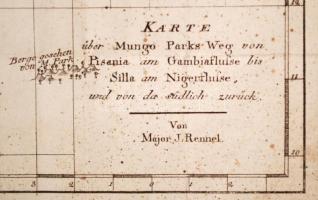 KARTE
über Mungo Parks Weg von
Pisania am Gambiafluise bis
Silla am Nigerfluise,
und von da südlich zurück.
Von
Major J. Rennel.
Berge gesehen
von M. Park
11
10
3 2 1 0 1 2